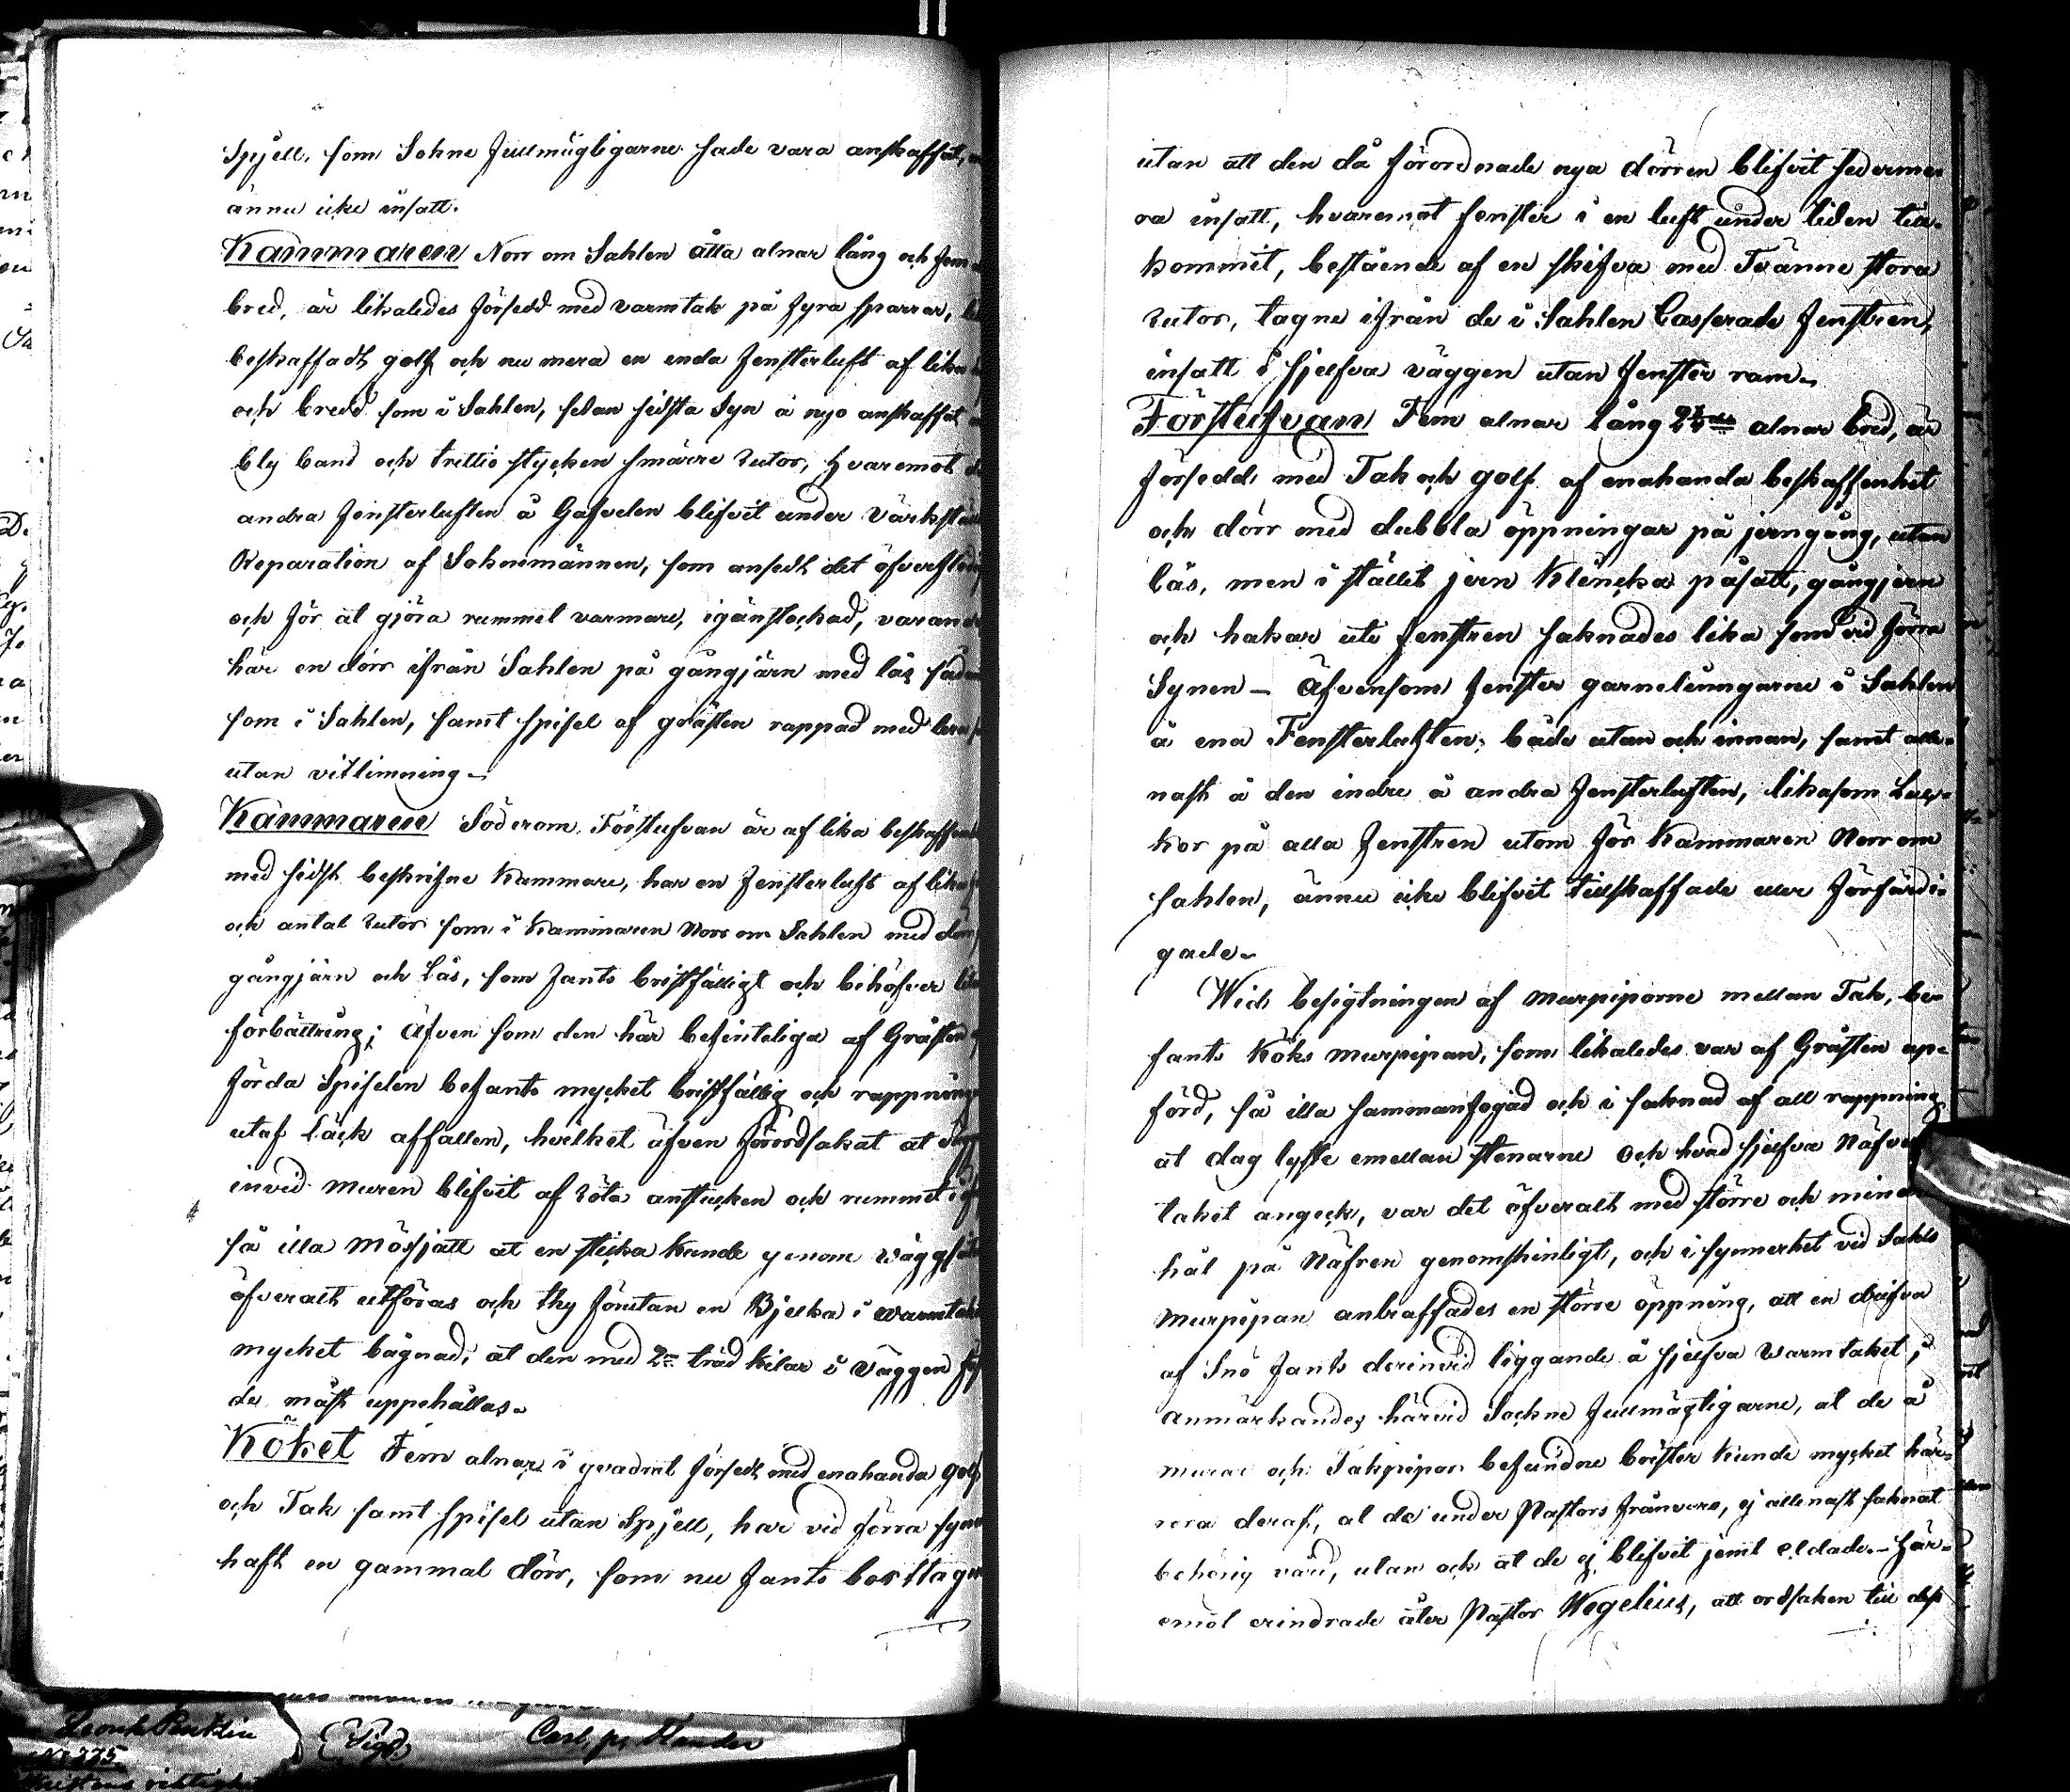 Spjell, som Sokne fullmägtigarne sade vara anskaffat,
ännu icke insatt.
Kammaren Norr om Sahlen åtta alnar lång och fem
bred, är likaledes försedd med varmtak på fyra sparrar,
beskaffadt golf och nu mera en enda fensterluft af lika
och bredd som i Sahlen, sedan sidsta Syn å nyo anskaffat
bly band och trettio stycken smärre rutor, hvaremot
andra fensterluften å Gafvelen blifvit under värkstäld
Reparation af Soknemännen, som ansedt det öfverflödig
och för at gjöra rummet varmare, igänstockad, varande
här en dörr ifrån Sahlen på gångjärn med lås sådan
som i Sahlen, samt spisel af gråsten rappad med lera
utan vitlimning.
Kammaren Söderom Förstufvan är af lika beskaffenhet
med sidst beskrifne Kammare, har en fensterluft af lika
och antal rutor som i Kammaren Norr om Sahlen med dörr
gångjärn och Lås, som fants bristfälligt och behöfver
förbättring; Äfven som den här befinteliga af Gråsten
förda Spiselen befants mycket bristfällig och rappningen
utaf Läck affallen, hvilket äfven förordsakat at
invid muren blifvit af röta anstucken och rummet
så illa mossjatt at en sticka kunde genom väggen
öfveralt utföras och thy förutan en Bjelka i warmtaket
mycket bågnad, at den med 2ne träd kilar i väggen
de måst uppehållas.
Köket Fem alnar i qvadrat försedt med enahanda golf
och Tak samt spisel utan Spjell, har vid förra syn
haft en gammal dörr, som nu fants borttagen
utan att den då förordnade nya dörren blifvit sedermer
ra insatt, hvaremot fenster i en luft under tiden till.
kommit, bestående af en skifva med Tvänne stora
rutor, tagne ifrån de i Sahlen Casserade fenstren,
insatt i sjelfva väggen utan fenster ram.
Förstufvan Fem alnar lång 2½ alnar bred, är
försedd med Tak och golf af enahanda beskaffenhet
och dörr med dubbla öppningar på jerngång, utan
lås, men i stället jern Klincka påsatt, gångjern
och hakar ute fenstren saknades lika som vid förra
Synen - Äfvensom fenster garneringarne i Sahlen
å ena Fensterluften, både utan och innan, samt alle-
nast å den indre å andra fensterluften, likasom Luc-
kor på alla fenstren utom för Kammaren Norr om
sahlen, ännu icke blifvit tillskaffade eller förfärdi-
gade.
Wid besigtningen af murpiporne mellan Tak, be-
fants Köks murpipan, som likaledes var af Gråsten up-
förd, så illa sammanfogad och i saknad af all rappning
at dag lyste emellan stenarne och hvad sjelfva Näfver
taket angeck, var det öfveralt med större och mindre
hål på Näfren genomskinligt, och i synnerhet vid Sahls
murpipan anträffades en större öppning, att en drifva
af Snö fants derinvid liggande å sjelfva warmtaket,
anmärkandes härvid Sockne fullmägtigarne, at de å
murar och Takpipor befundne brister kunde mycket här-
röra deraf, at de under Pastors frånvaro, ej allenast saknat
behörig vård, utan ock at de ej blifvit jemt eldade. - Här-
emot erindrade åter Pastor Wegelius, att ordsaken till
Carl, pr Mander